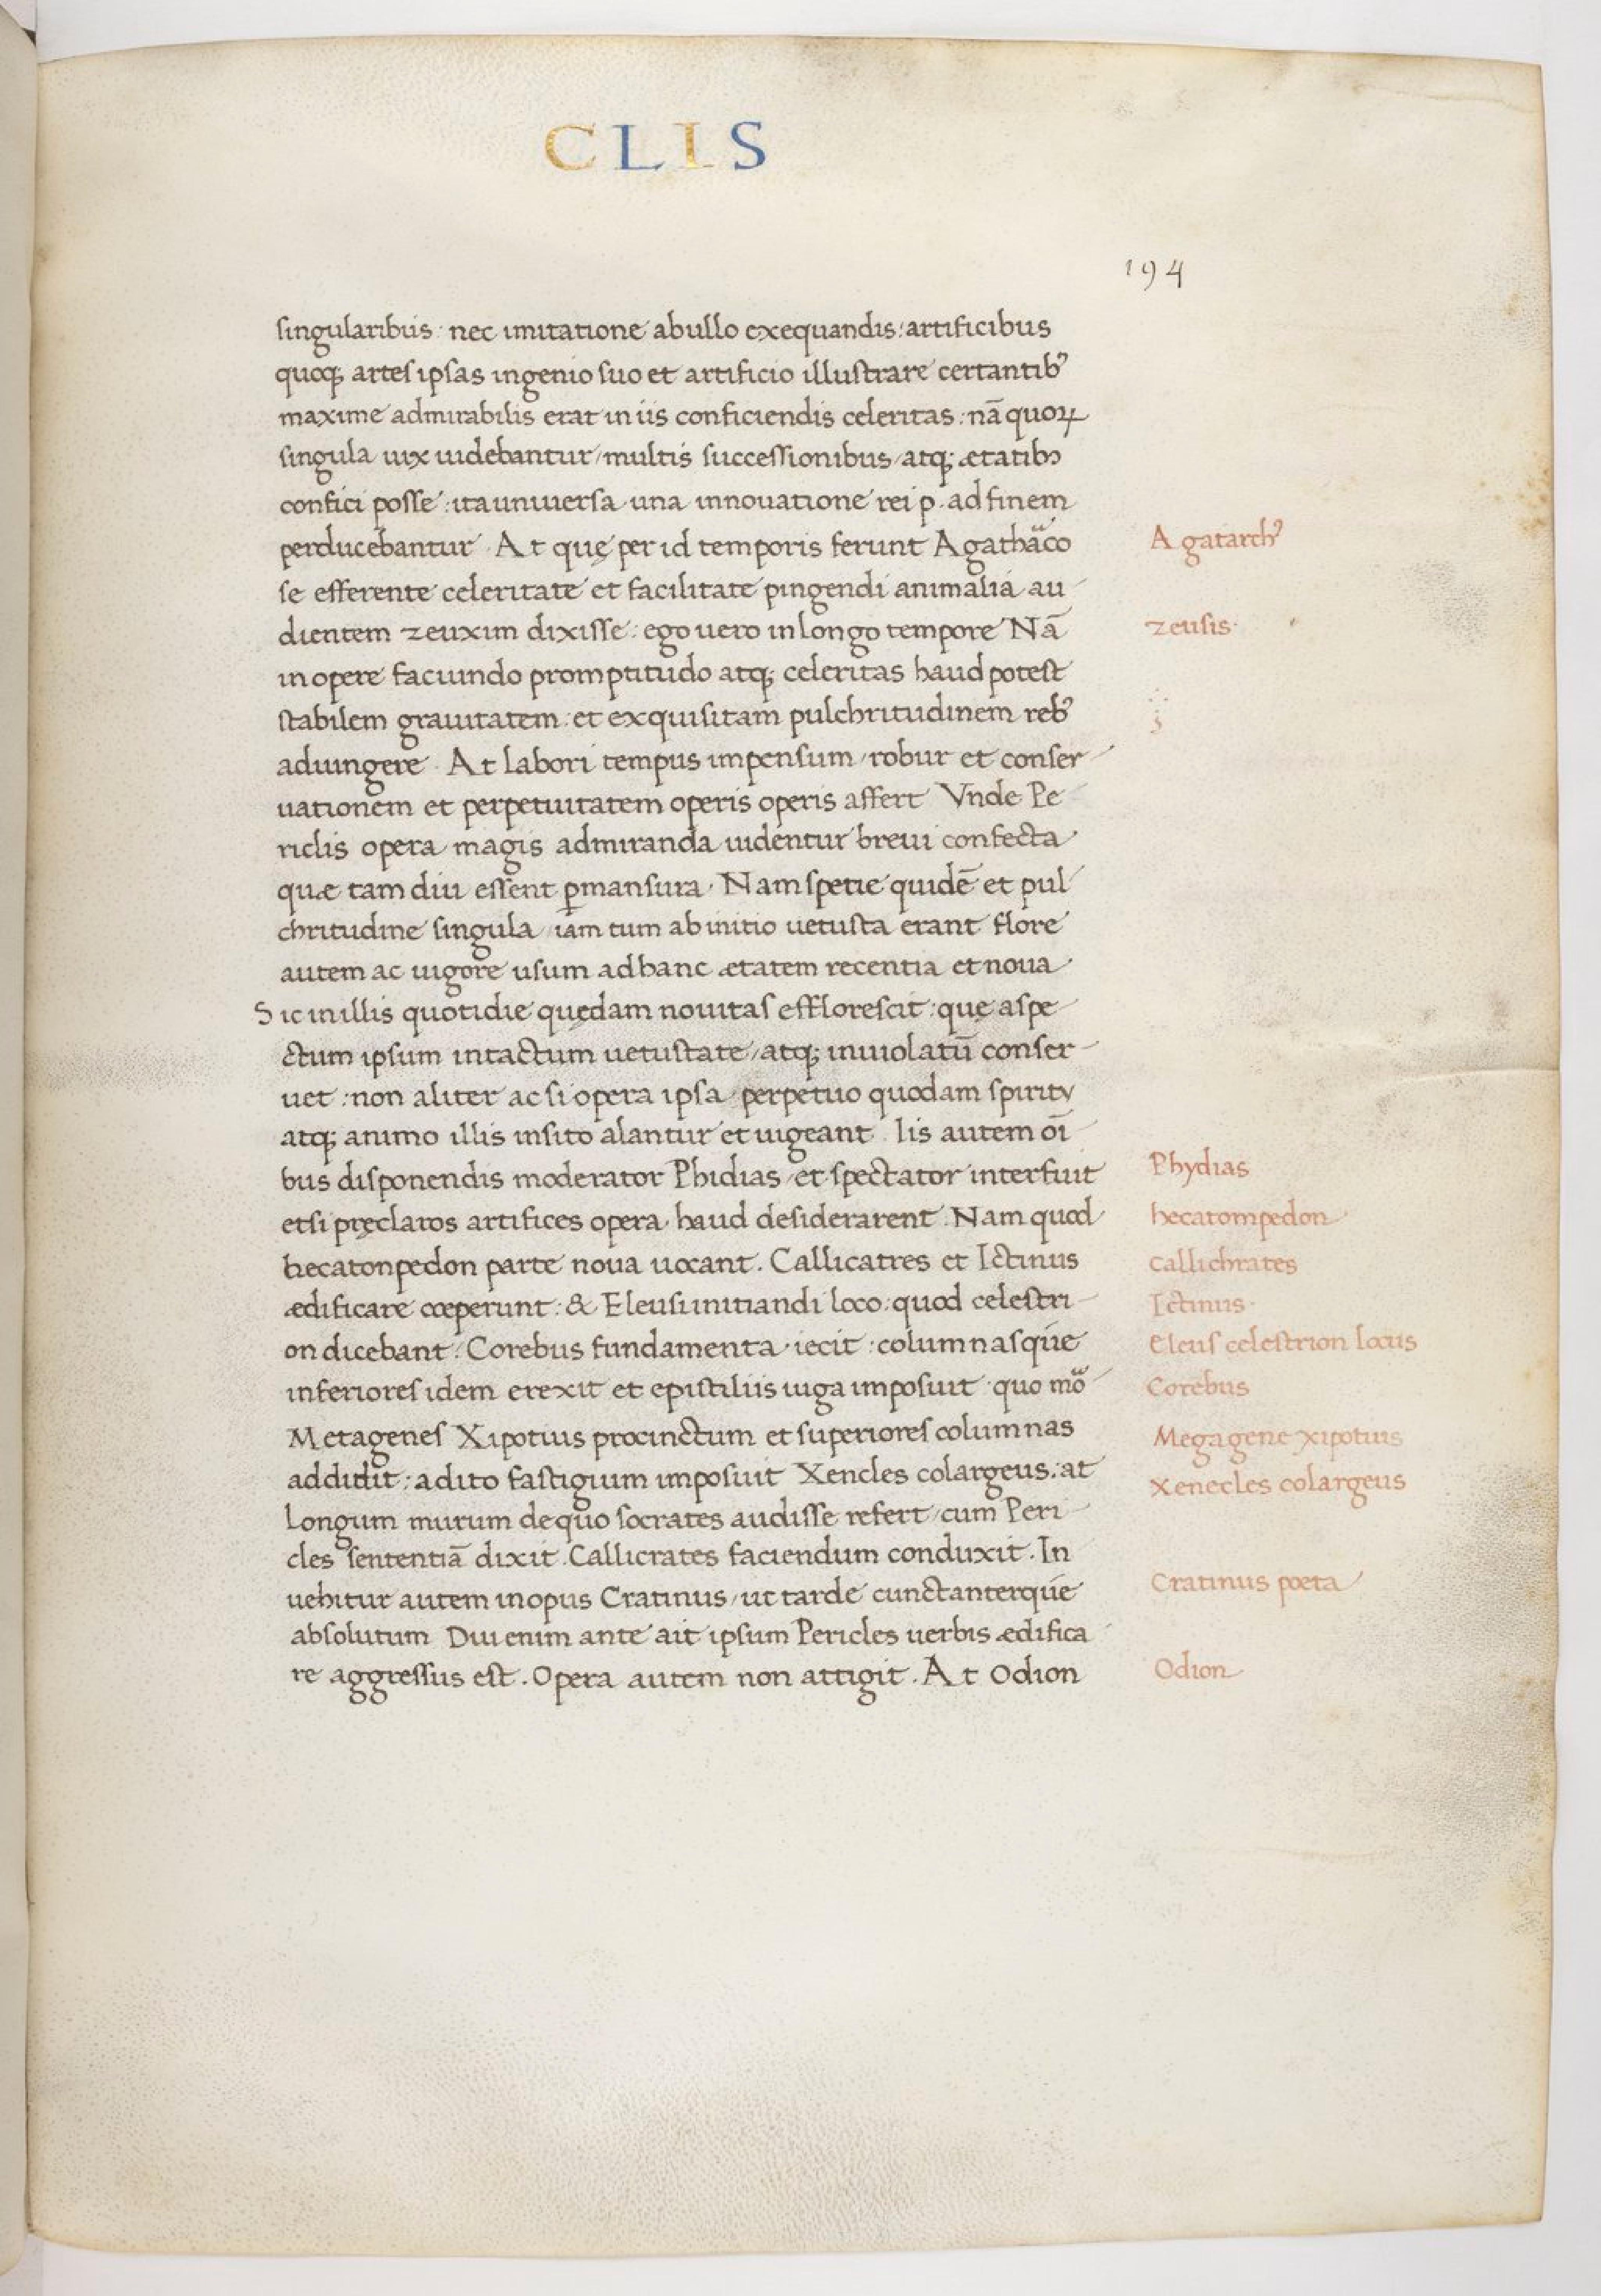 CLIS
194
singularibus · nec imitatione ab ullo exequandis : artificibus
quoq; artes ipsas ingenio suo et artificio illustrare certantib᾿
maxime admirabilis erat in iis conficiendis celeritas : nā quoꝝ
singula uix uidebantur / multis successionibus / atq; ætatibꝫ
confici posse : ita uniuersa una innouatione rei p. ad finem
perducebantur · At quę per id temporis ferunt Agathaco
Agatarch᾿
se efferente celeritate et facilitate pingendi animalia au-
dientem zeuxim dixisse : ego uero in longo tempore Nā
zeusis·
in opere faciundo promptitudo atq; celeritas haud potest
stabilem grauitatem : et exquisitam pulchritudinem reb᾿
adiungere · At labori tempus impensum / robur et conser-
uationem et perpetuitatem operis operis affert Vnde Pe-
riclis opera magis admiranda uidentur breui confecta
quæ tam diu essent ꝑmansura · Nam spetie quidē et pul-
chritudine singula / iam tum ab initio uetusta erant flore
autem ac uigore usum ad hanc ætatem recentia et noua·
Sic in illis quotidie quędam nouitas efflorescit : quę aspe-
ctum ipsum intactum uetustate / atq; inuiolatū conser-
uet : non aliter ac si opera ipsa perpetuo quodam spiritu
atq; animo illis insito alantur et uigeant . Iis autem oī-
bus disponendis moderator Phidias / et spectator interfuit
Phydias
etsi pręclaros artifices opera haud desiderarent . Nam quod
hecatompedon
hecatonpedon parte noua uocant . Callicatres et Ictinus
callichrates
ædificare cœperunt : & Eleusi initiandi loco : quod celestri-
Ictinus·
on dicebant : Corebus fundamenta iecit : columnasque
Eleus celestrion locus
inferiores idem erexit et epistiliis iuga imposuit · quo mō
Corebus
Metagenes Xipotius procinctum et superiores columnas
Megagene xipotius
addidit : adito fastigium imposuit Xencles colargeus : at
xenecles colargeus
Longum murum de quo socrates audisse refert / cum Peri-
cles sententiā dixit . Callicrates faciendum conduxit . In
uehitur autem in opus Cratinus / ut tarde cunctanterque
Cratinus poeta
absolutum Diu enim ante ait ipsum Pericles uerbis ædifica
re aggressus est . Opera autem non attigit . At Odion
Odion